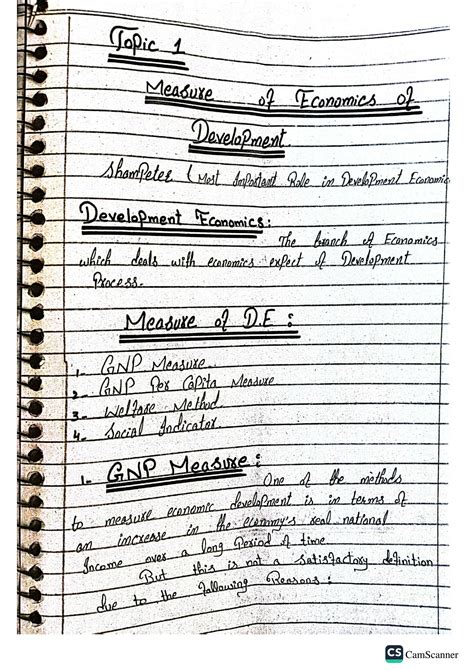 Topic 1
Measure of Economics of
Development
Shompeter (Most Important Role in Development Economic
Development Economics:
The branch of Economics
which deals with economics expect of Development
Process.
Measure of D.E :
1- GNP Measure
2- GNP Per Capita Measure
3- Welfare Method
4- Social Indicator
1- GNP Measure :
One of the methods
to measure economic development is in terms of
an increase in the economy's real national
Income over a long Period of time
But this is not a satisfactory definition
due to the following Reasons :
CS CamScanner